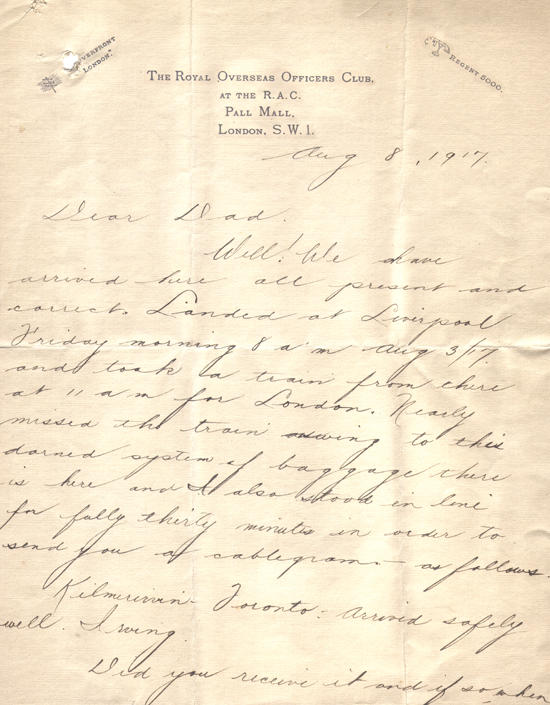 "Overfront London."
Regent 5000.
The Royal Overseas Officers Club,
at the R.A.C.
Pall Mall,
London, S.W. 1.
Aug 8, 1917.
Dear Dad.
Well! We have
arrived here all present and
correct. Landed at Liverpool
Friday morning 8 a'm Aug 3/17.
and took a train from there
at 11 a m for London. Nearly
missed the train owing to this
darned system of baggage there
is here and I also stood in line
for fully thirty minutes in order to
send you a cablegram - as follows.
Kilmerwin - Toronto - Arrived safely
well. Irving.
Did you receive it and if so, when